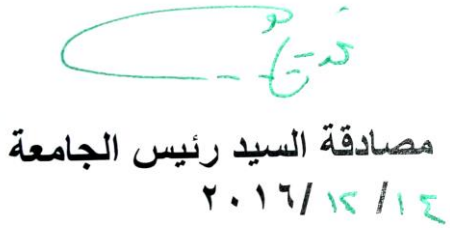 مصادقة السيد رئيس الجامعة
١٤/ ١٢/ ٢٠١٦